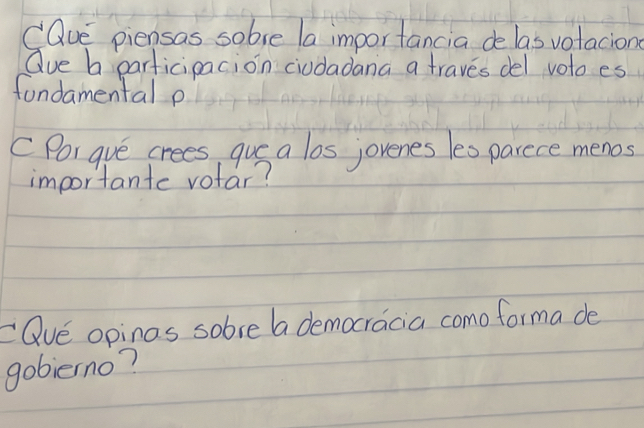 ¿Qué piensas sobre la importancia de las votacion
Que la participación ciudadana a través del voto es
fundamental p
¿Por qué crees que a los jovenes les parece menos
importante votar?
¿Qué opinas sobre la democrácia como forma de
gobierno?